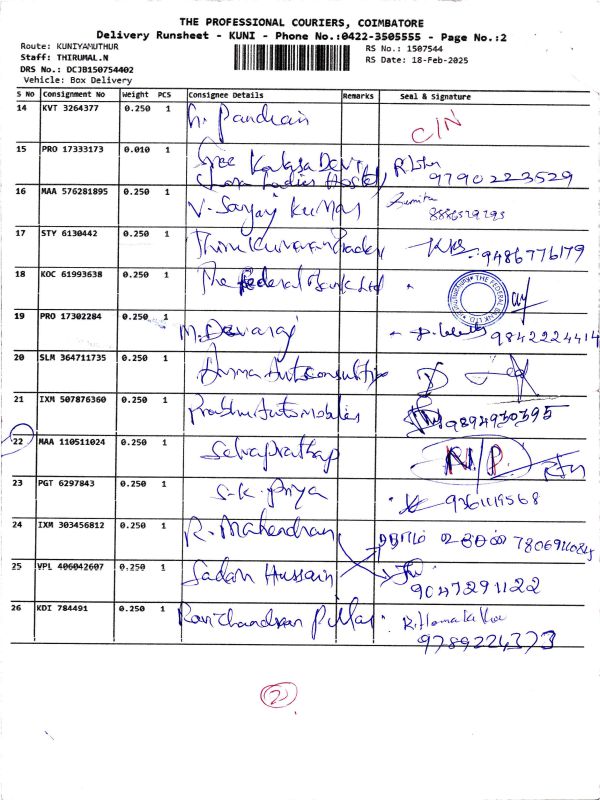 THE PROFESSIONAL COURIERS, COIMBATORE
Delivery Runsheet - KUNI - Phone No.:0422-3505555 - Page No.:2
Route: KUNIYAMUTHUR
RS No.: 1507544
Staff: THIRUMAL.N
RS Date: 18-Feb-2025
DRS No.: DCJB150754402
Vehicle: Box Delivery
S No Consignment No Weight PCS Consignee Details Remarks Seal & Signature
14 KVT 3264377 0.250 1 Pandian C/N
15 PRO 17333173 0.010 1 Sree Devi
Ladies Hostel 9790223529
16 MAA 576281895 0.250 1 V. Sanjay Kumar
17 STY 6130442 0.250 1 9486776179
18 KOC 61993638 0.250 1 The Federal Bank Ltd THE FEDERAL BANK LTD
19 PRO 17302284 0.250 1 M. Devaraj 9842224414
20 SLM 364711735 0.250 1
21 IXM 507876360 0.250 1 Automobiles 9894930395
22 MAA 110511024 0.250 1 Selvaprathap N/P.
23 PGT 6297843 0.250 1 S.K. Priya
24 IXM 303456812 0.250 1 R. Mahendran
25 VPL 406042607 0.250 1 Sadam Hussain 9047291122
26 KDI 784491 0.250 1 Ravichandran Pillai 9789224373
2